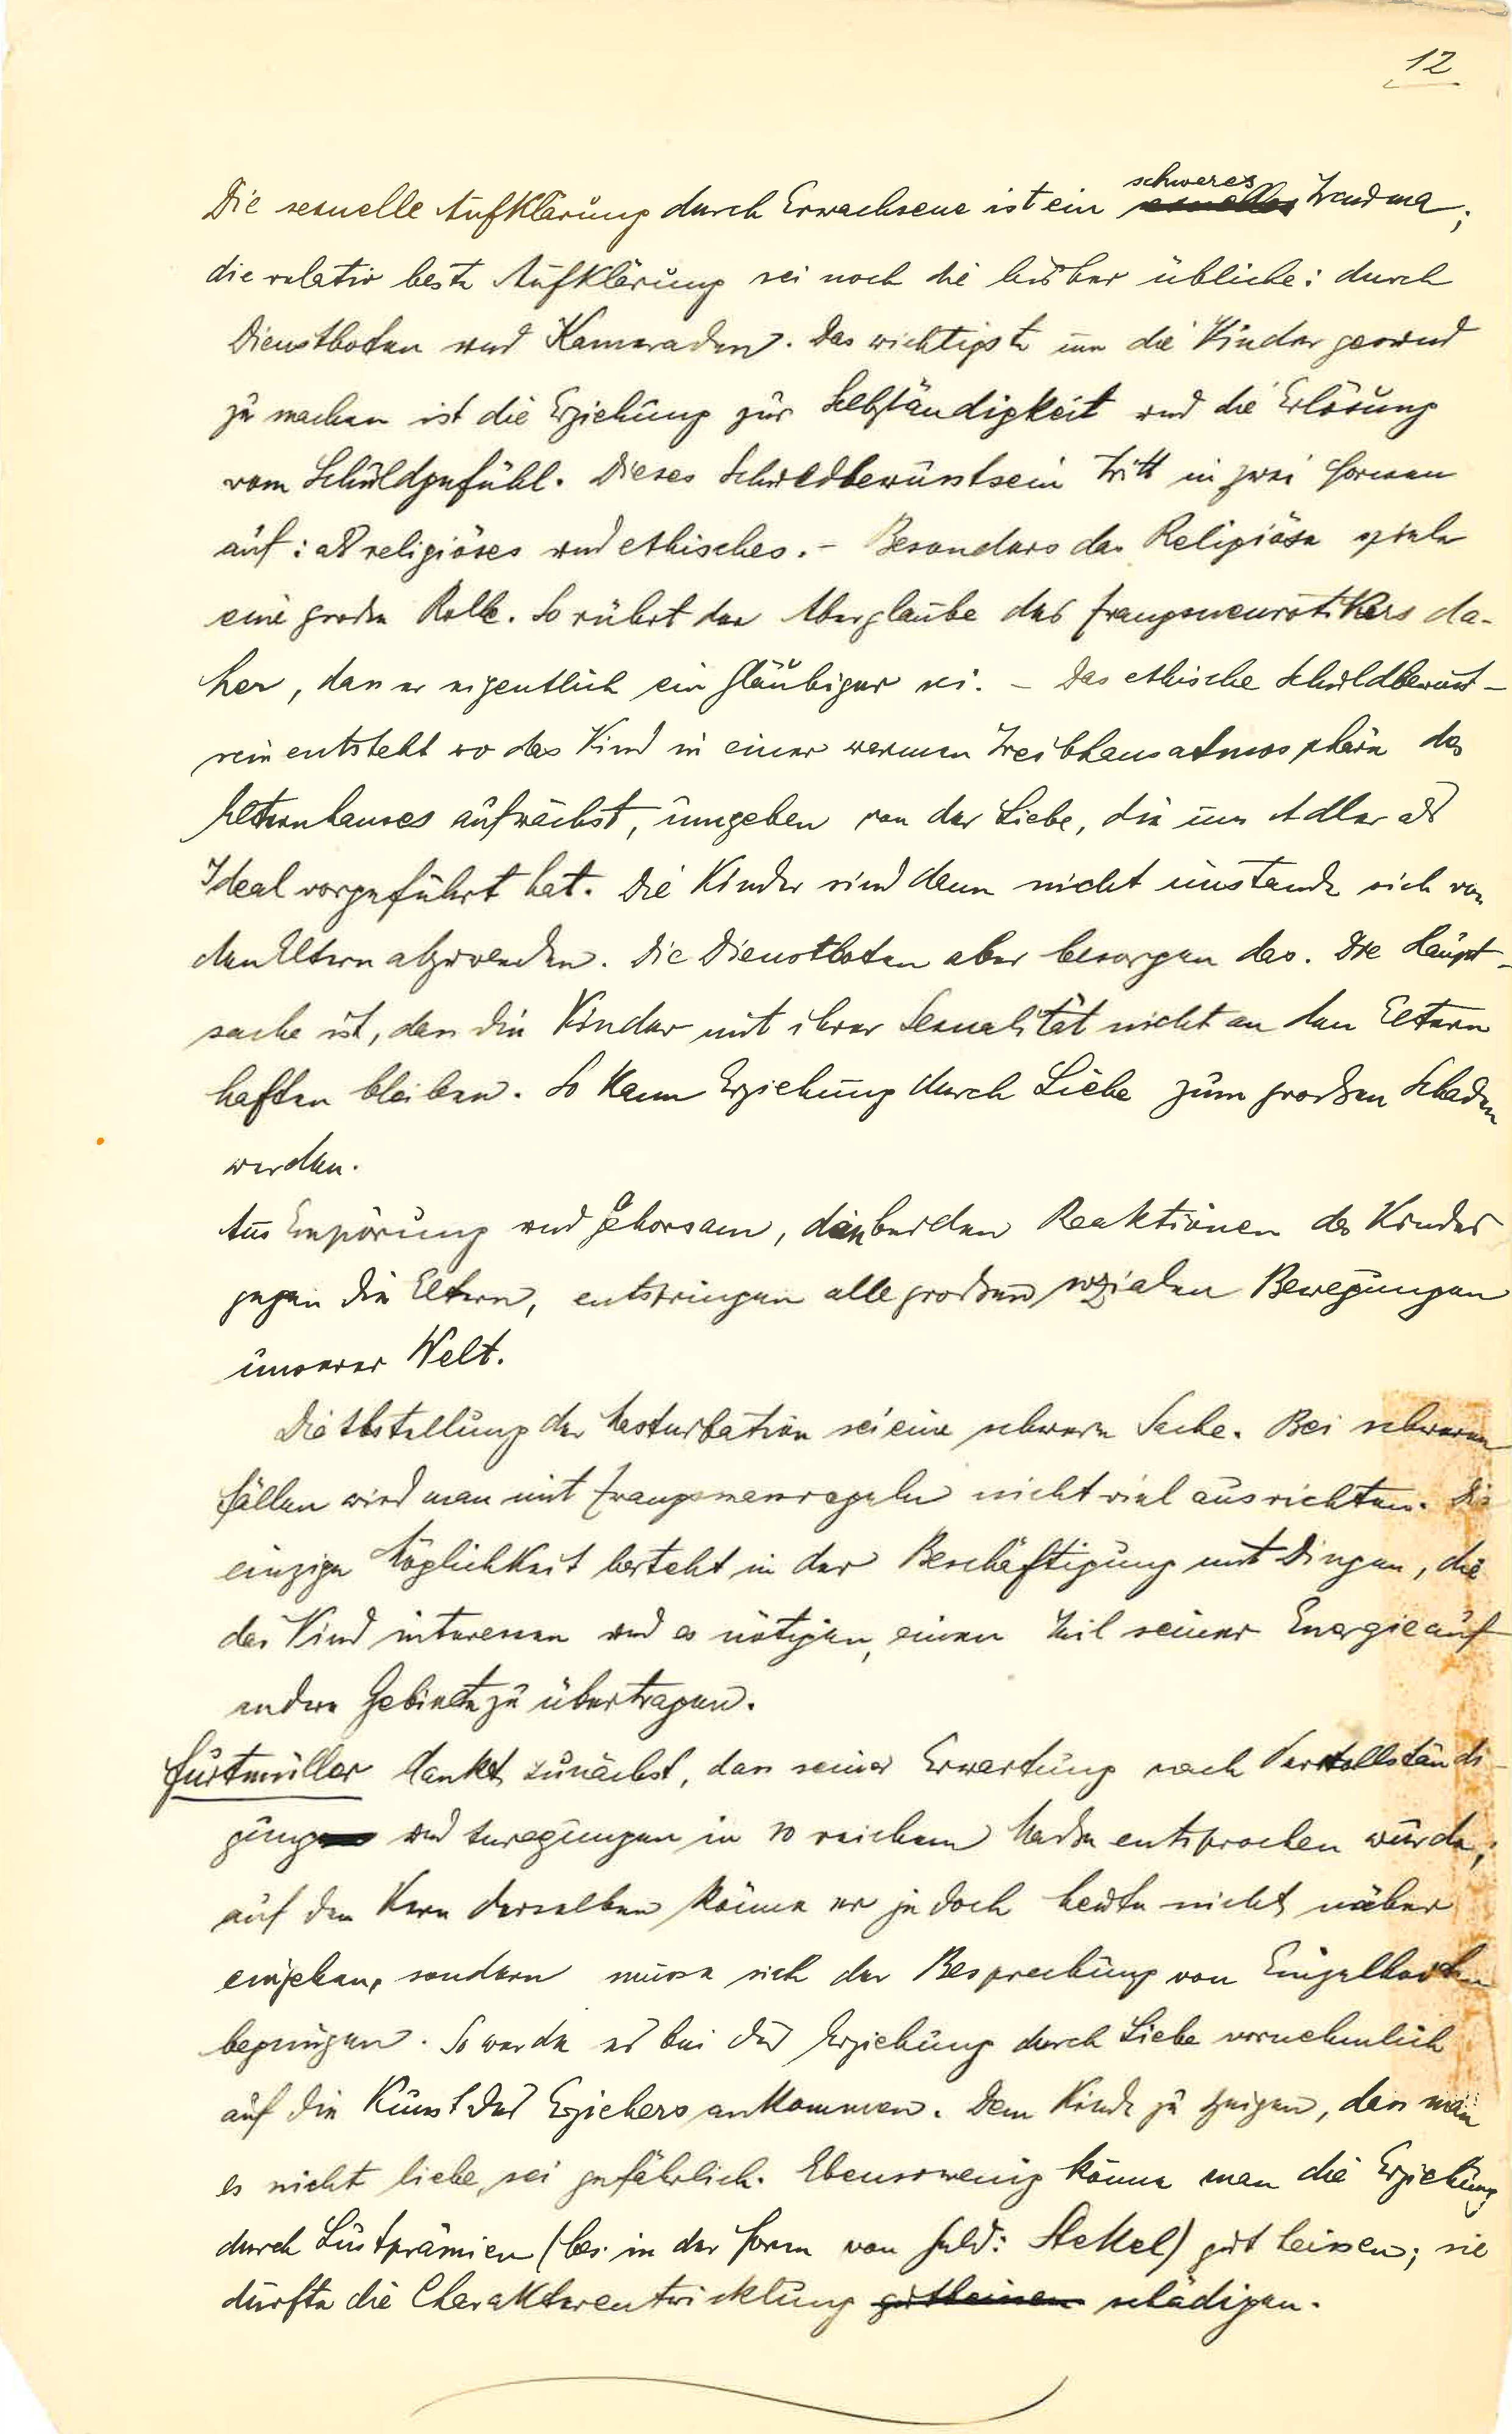 12
Die sexuelle Aufklärung durch Erwachsene ist ein schweres Trauma;
die relativ beste Aufklärung sei noch die bisher übliche: durch
Dienstboten und Kameraden. Das wichtigste um die Kinder gesund
zu machen ist die Erziehung zur Selbständigkeit und die Erlösung
vom Schuldgefühl. Dieses Schuldbewusstsein tritt in zwei Formen
auf: als religiöses und ethisches. – Besonders das Religiöse spiele
eine große Rolle. So rührt der Aberglaube des Zwangsneurotikers da-
her, dass er eigentlich ein Gläubiger sei. – Das ethische Schuldbewusst-
sein entsteht wo das Kind in einer warmen Treibhausatmosphäre des
Elternhauses aufwächst, umgeben von der Liebe, die uns Adler als
Ideal vorgeführt hat. Die Kinder sind dann nicht imstande sich von
den Eltern abzuwenden. Die Dienstboten aber besorgen das. Die Haupt-
sache ist, dass die Kinder mit ihrer Sexualität nicht an den Eltern
haften bleiben. So kann Erziehung durch Liebe zum großen Schaden
werden.
Aus Empörung und Gehorsam, den beiden Reaktionen des Kindes
gegen die Eltern, entspringen alle großen sozialen Bewegungen
unserer Welt.
Die Abstellung der Masturbation sei eine schwere Sache. Bei schweren
Fällen wird man mit Zwangsmassregeln nicht viel ausrichten. Die
einzige Möglichkeit besteht in der Beschäftigung mit Dingen, die
das Kind interessen und es nötigen, einen Teil seiner Energie auf
andere Gebiete zu übertragen.
Furtmüller dankt zunächst, dass seiner Erwartung nach Vervollständi-
gung und Anregungen in so reichem Maße entsprochen wurde;
auf den Kern derselben könne er jedoch heute nicht näher
eingehen, sondern müsse sich der Besprechung von Einzelheiten
begnügen. So werde es bei der Erziehung durch Liebe vornehmlich
auf die Kunst des Erziehers ankommen. Dem Kinde zu zeigen, dass man
es nicht liebe, sei gefährlich. Ebensowenig könne man die Erziehung
durch Lustprämien (bes. in der Form von Geld: Stekel) gut heissen; sie
dürfte die Charakterentwicklung gutheissen schädigen.